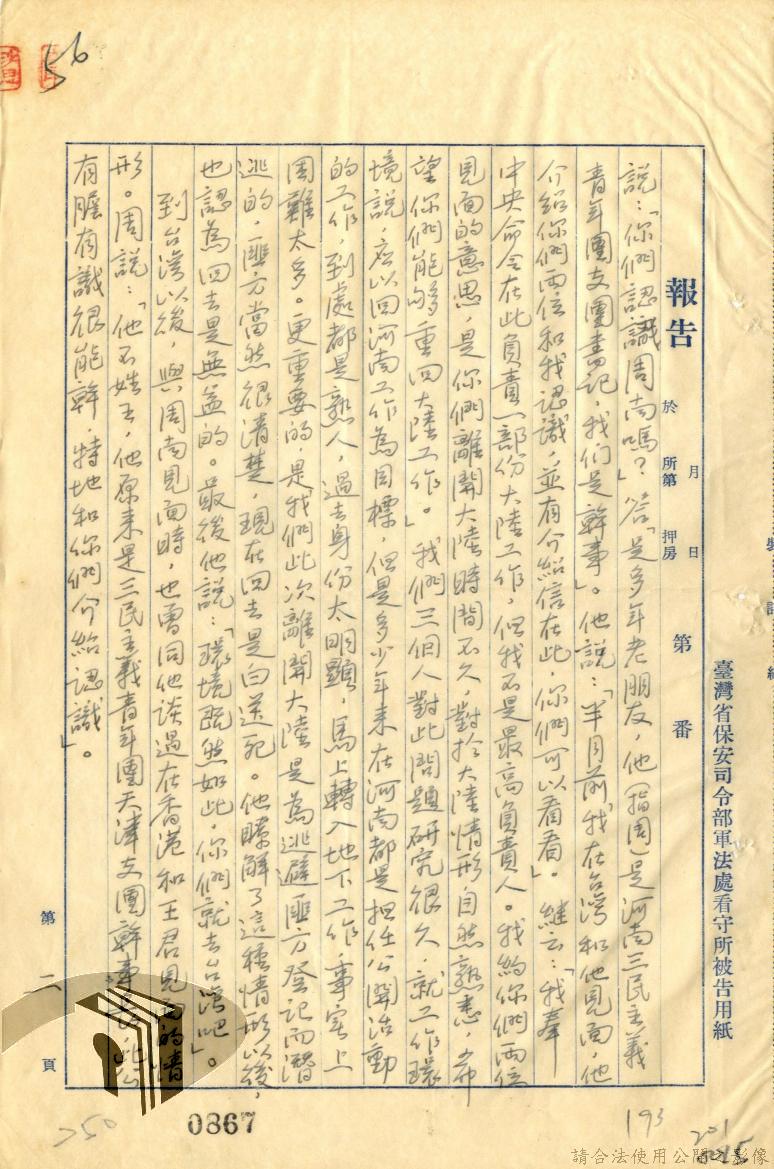 56
報告
於
所第
押房
月
日
第
番
臺灣省保安司令部軍法處看守所被告用紙
說：「你們認識周南嗎？」答「是多年老朋友，他（指周）是河南三民主義
青年團支團書記，我們是幹事」。他說：「半月前我在台灣和他見面，他
介紹你們兩位和我認識，並有介紹信在此，你們可以看看」。繼云：「我奉
中央命令在此負責一部份大陸工作，但我不是最高負責人。我約你們兩位
見面的意思，是你們離開大陸時間不久，對於大陸情形自然熟悉，希
望你們能够重回大陸工作。」我們三個人對此問題研究很久，就工作環
境說，應以回河南工作為目標，但是多少年來在河南都是担任公開活動
的工作，到處都是熟人，過去身份太明顯，馬上轉入地下工作，事实上
困難太多。更重要的，是我們此次離開大陸是為逃避匪方登記而潛
逃的，匪方當然很清楚，現在回去是白送死。他瞭解了這種情形以後，
也認為回去是無益的。最後他說：「環境既然如此，你們就去台灣吧」。
到台灣以後，與周南見面時，也曾同他談過在香港和王君見面的情
形。周說：「他不姓王，他原來是三民主義青年團天津支團幹事長，此公
有膽有識很能幹，特地和你們介紹認識」。
第二頁
0867
250
193
201
請合法使用公開之影像